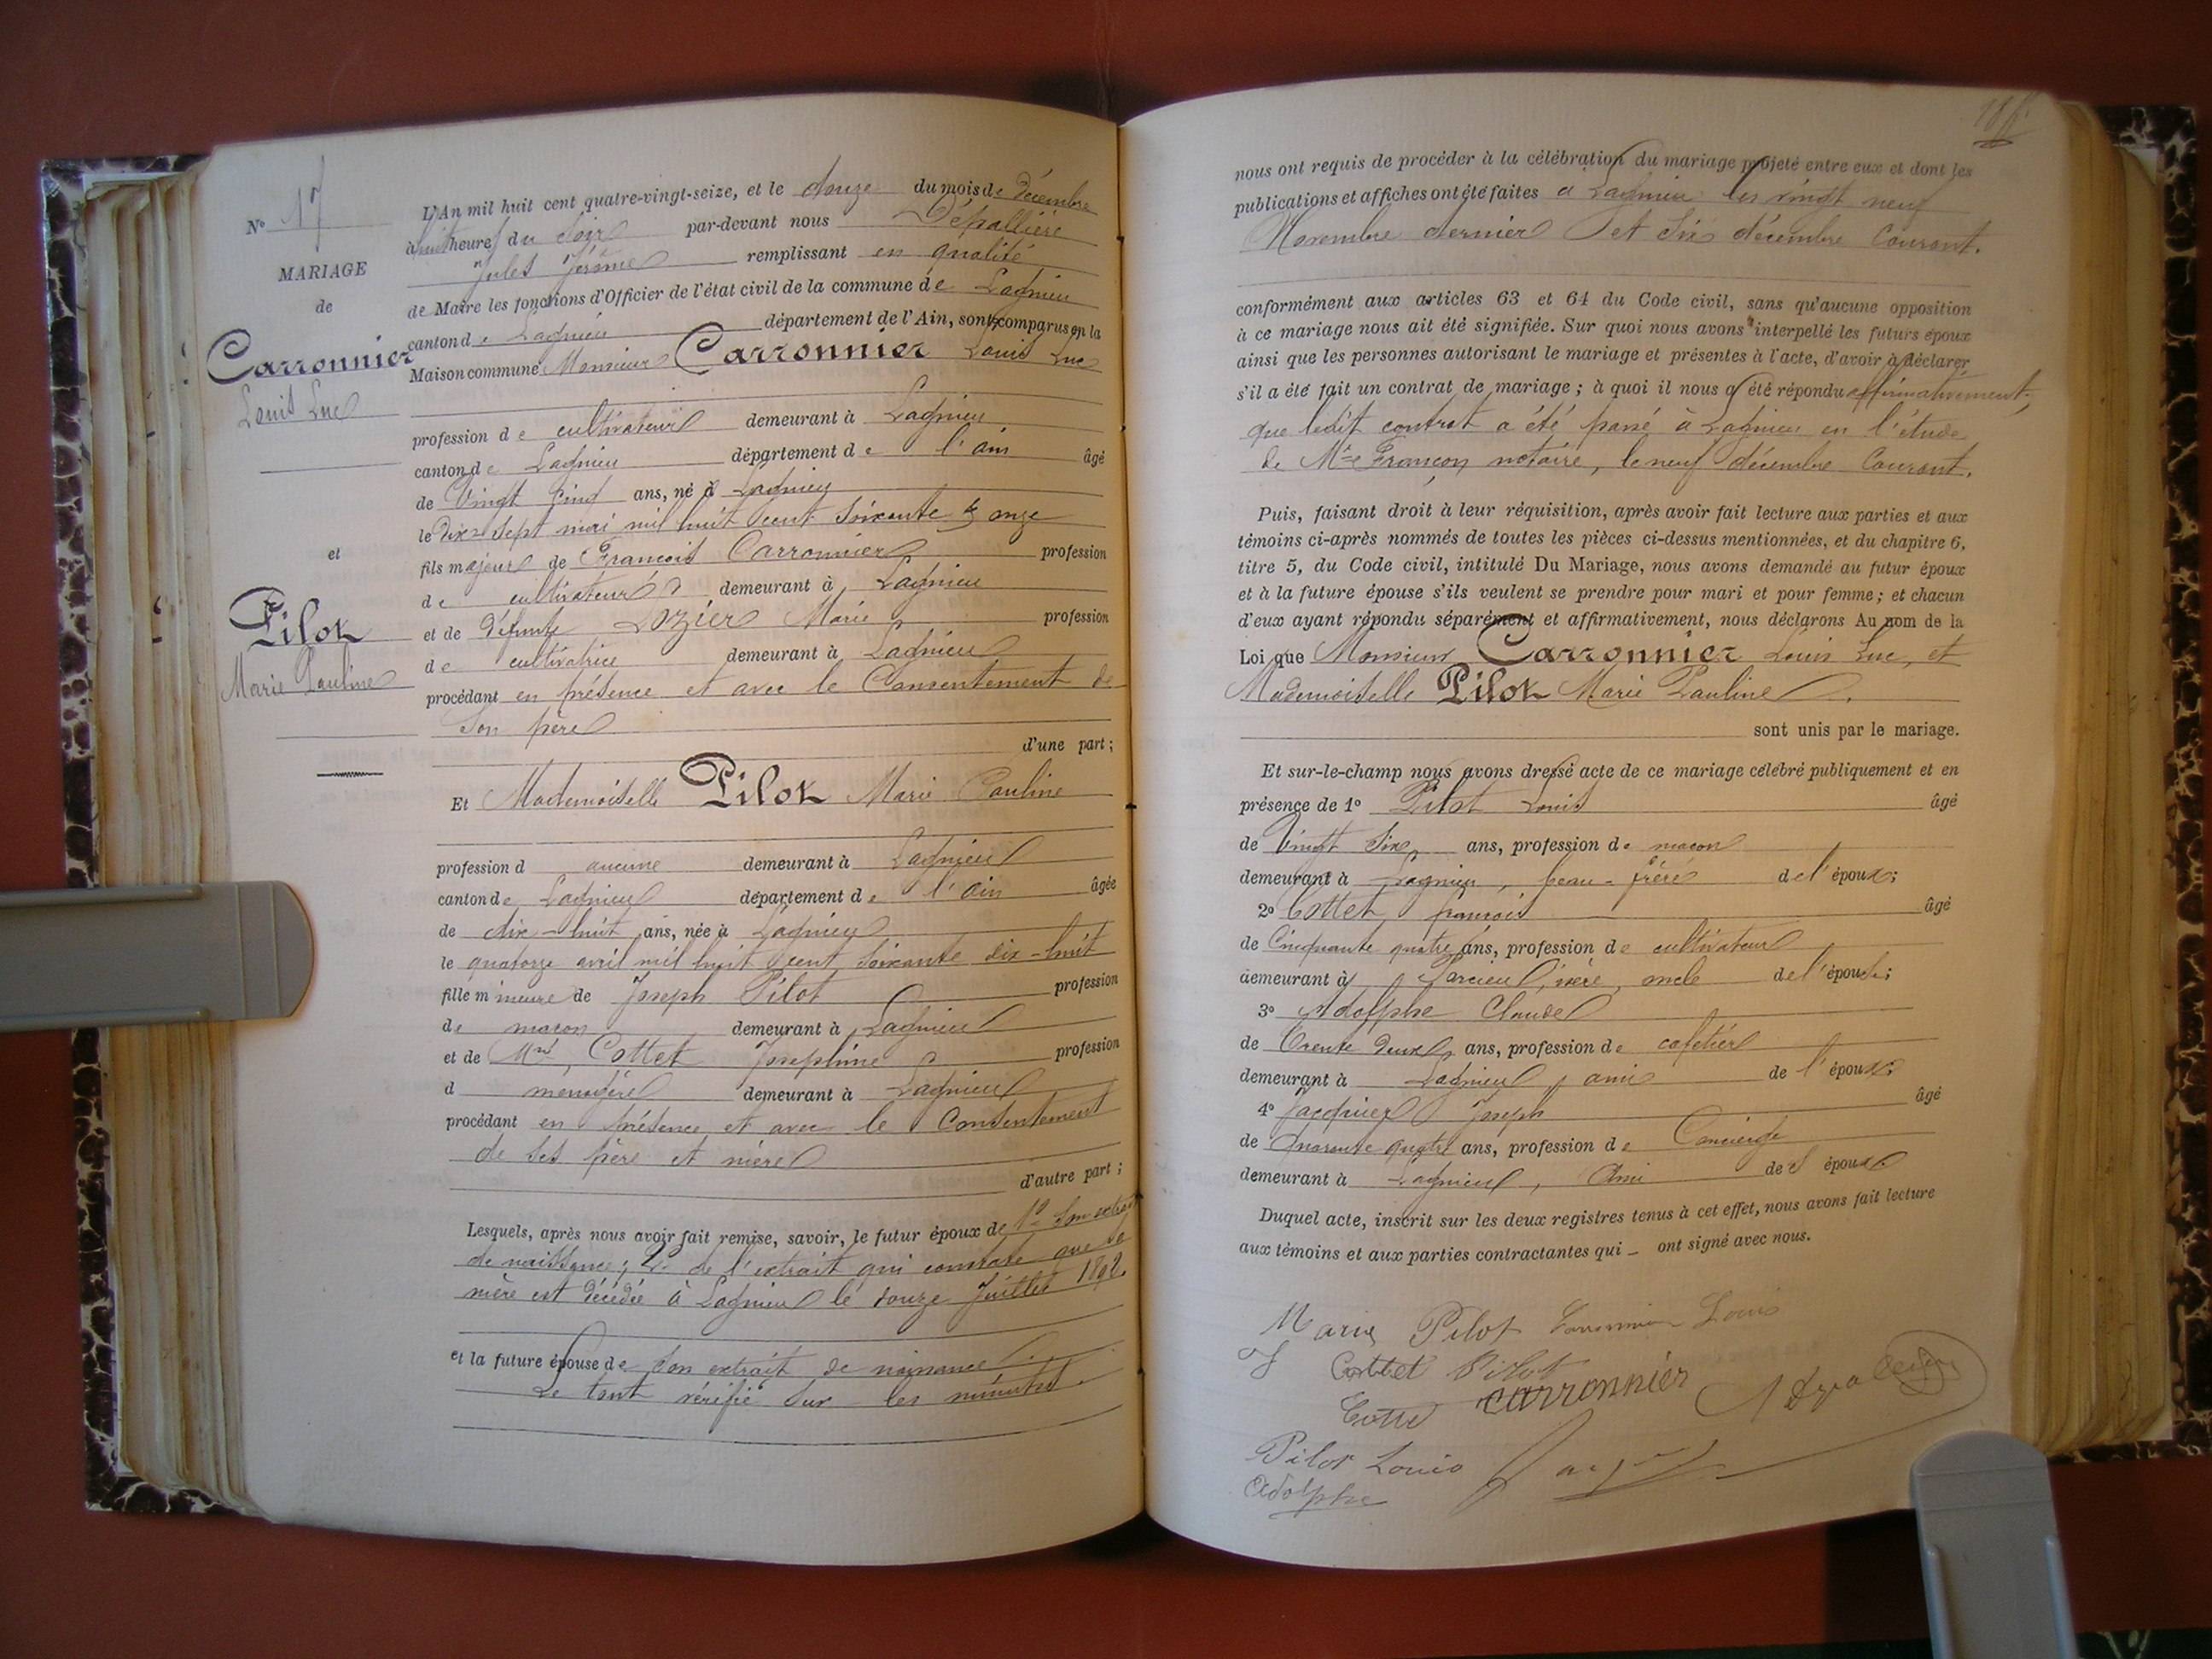 No 17
MARIAGE
de
Carronnier
Louis Luc
et
Pilot
Marie Pauline
L'An mil huit cent quatre-vingt-seize, et le douze du mois de décembre
à huit heures du soir par-devant nous Dépallière
Jules Jérôme remplissant en qualité
de Maire les fonctions d'Officier de l'état civil de la commune de Lagnieu
canton de Lagnieu département de l'Ain, sont comparus en la
Maison commune Monsieur Carronnier Louis Luc
profession de cultivateur demeurant à Lagnieu
canton de Lagnieu département de l'ain âgé
de Vingt cinq ans, né à Lagnieu
le dix-sept mai mil huit cent soixante & onze
fils majeur de François Carronnier profession
de cultivateur demeurant à Lagnieu
et de défunte Lozier Marie profession
de cultivatrice demeurant à Lagnieu
procédant en présence et avec le Consentement de
Son père
d'une part;
Et Mademoiselle Pilot Marie Pauline
profession d aucune demeurant à Lagnieu
canton de Lagnieu département de l'ain âgée
de dix-huit ans, née à Lagnieu
le quatorze avril mil huit cent soixante dix-huit
fille mineure de Joseph Pilot profession
de maçon demeurant à Lagnieu
et de Cottet Joséphine profession
d ménagère demeurant à Lagnieu
procédant en présence et avec le Consentement
de ses père et mère
d'autre part;
Lesquels, après nous avoir fait remise, savoir, le futur époux de 1° Son extrait
de naissance; 2° de l'extrait qui constate que sa
mère est décédée à Lagnieu le douze Juillet 1892.
et la future épouse de Son extrait de naissance
Le tout vérifié sur les minutes.
nous ont requis de procéder à la célébration du mariage projeté entre eux et dont les
publications et affiches ont été faites à Lagnieu les vingt neuf
Novembre dernier et Six décembre Courant.
conformément aux articles 63 et 64 du Code civil, sans qu'aucune opposition
à ce mariage nous ait été signifiée. Sur quoi nous avons interpellé les futurs époux
ainsi que les personnes autorisant le mariage et présentes à l'acte, d'avoir à déclarer
s'il a été fait un contrat de mariage; à quoi il nous a été répondu affirmativement,
que ledit contrat a été passé à Lagnieu en l'étude
de Me Françon notaire, le neuf décembre Courant.
Puis, faisant droit à leur réquisition, après avoir fait lecture aux parties et aux
témoins ci-après nommés de toutes les pièces ci-dessus mentionnées, et du chapitre 6,
titre 5, du Code civil, intitulé Du Mariage, nous avons demandé au futur époux
et à la future épouse s'ils veulent se prendre pour mari et pour femme; et chacun
d'eux ayant répondu séparément et affirmativement, nous déclarons Au nom de la
Loi que Monsieur Carronnier Louis Luc, et
Mademoiselle Pilot Marie Pauline.
sont unis par le mariage.
Et sur-le-champ nous avons dressé acte de ce mariage célébré publiquement et en
présence de 1° Pilot Louis âgé
de Vingt Six ans, profession de maçon
demeurant à Lagnieu, beau-frère de l'époux;
2° Cottet françois âgé
de Cinquante quatre ans, profession de cultivateur
demeurant à isère, oncle de l'épouse;
3° Adolphe Claude
de Trente deux ans, profession de cafetier
demeurant à Lagnieu, ami de l'époux;
4° Jacquier Joseph âgé
de Quarante quatre ans, profession de Concierge
demeurant à Lagnieu, Ami de l'époux.
Duquel acte, inscrit sur les deux registres tenus à cet effet, nous avons fait lecture
aux témoins et aux parties contractantes qui – ont signé avec nous.
Marie Pilot Carronnier Louis
J Cottet Pilot
carronnier
Pilot Louis
Adolphe